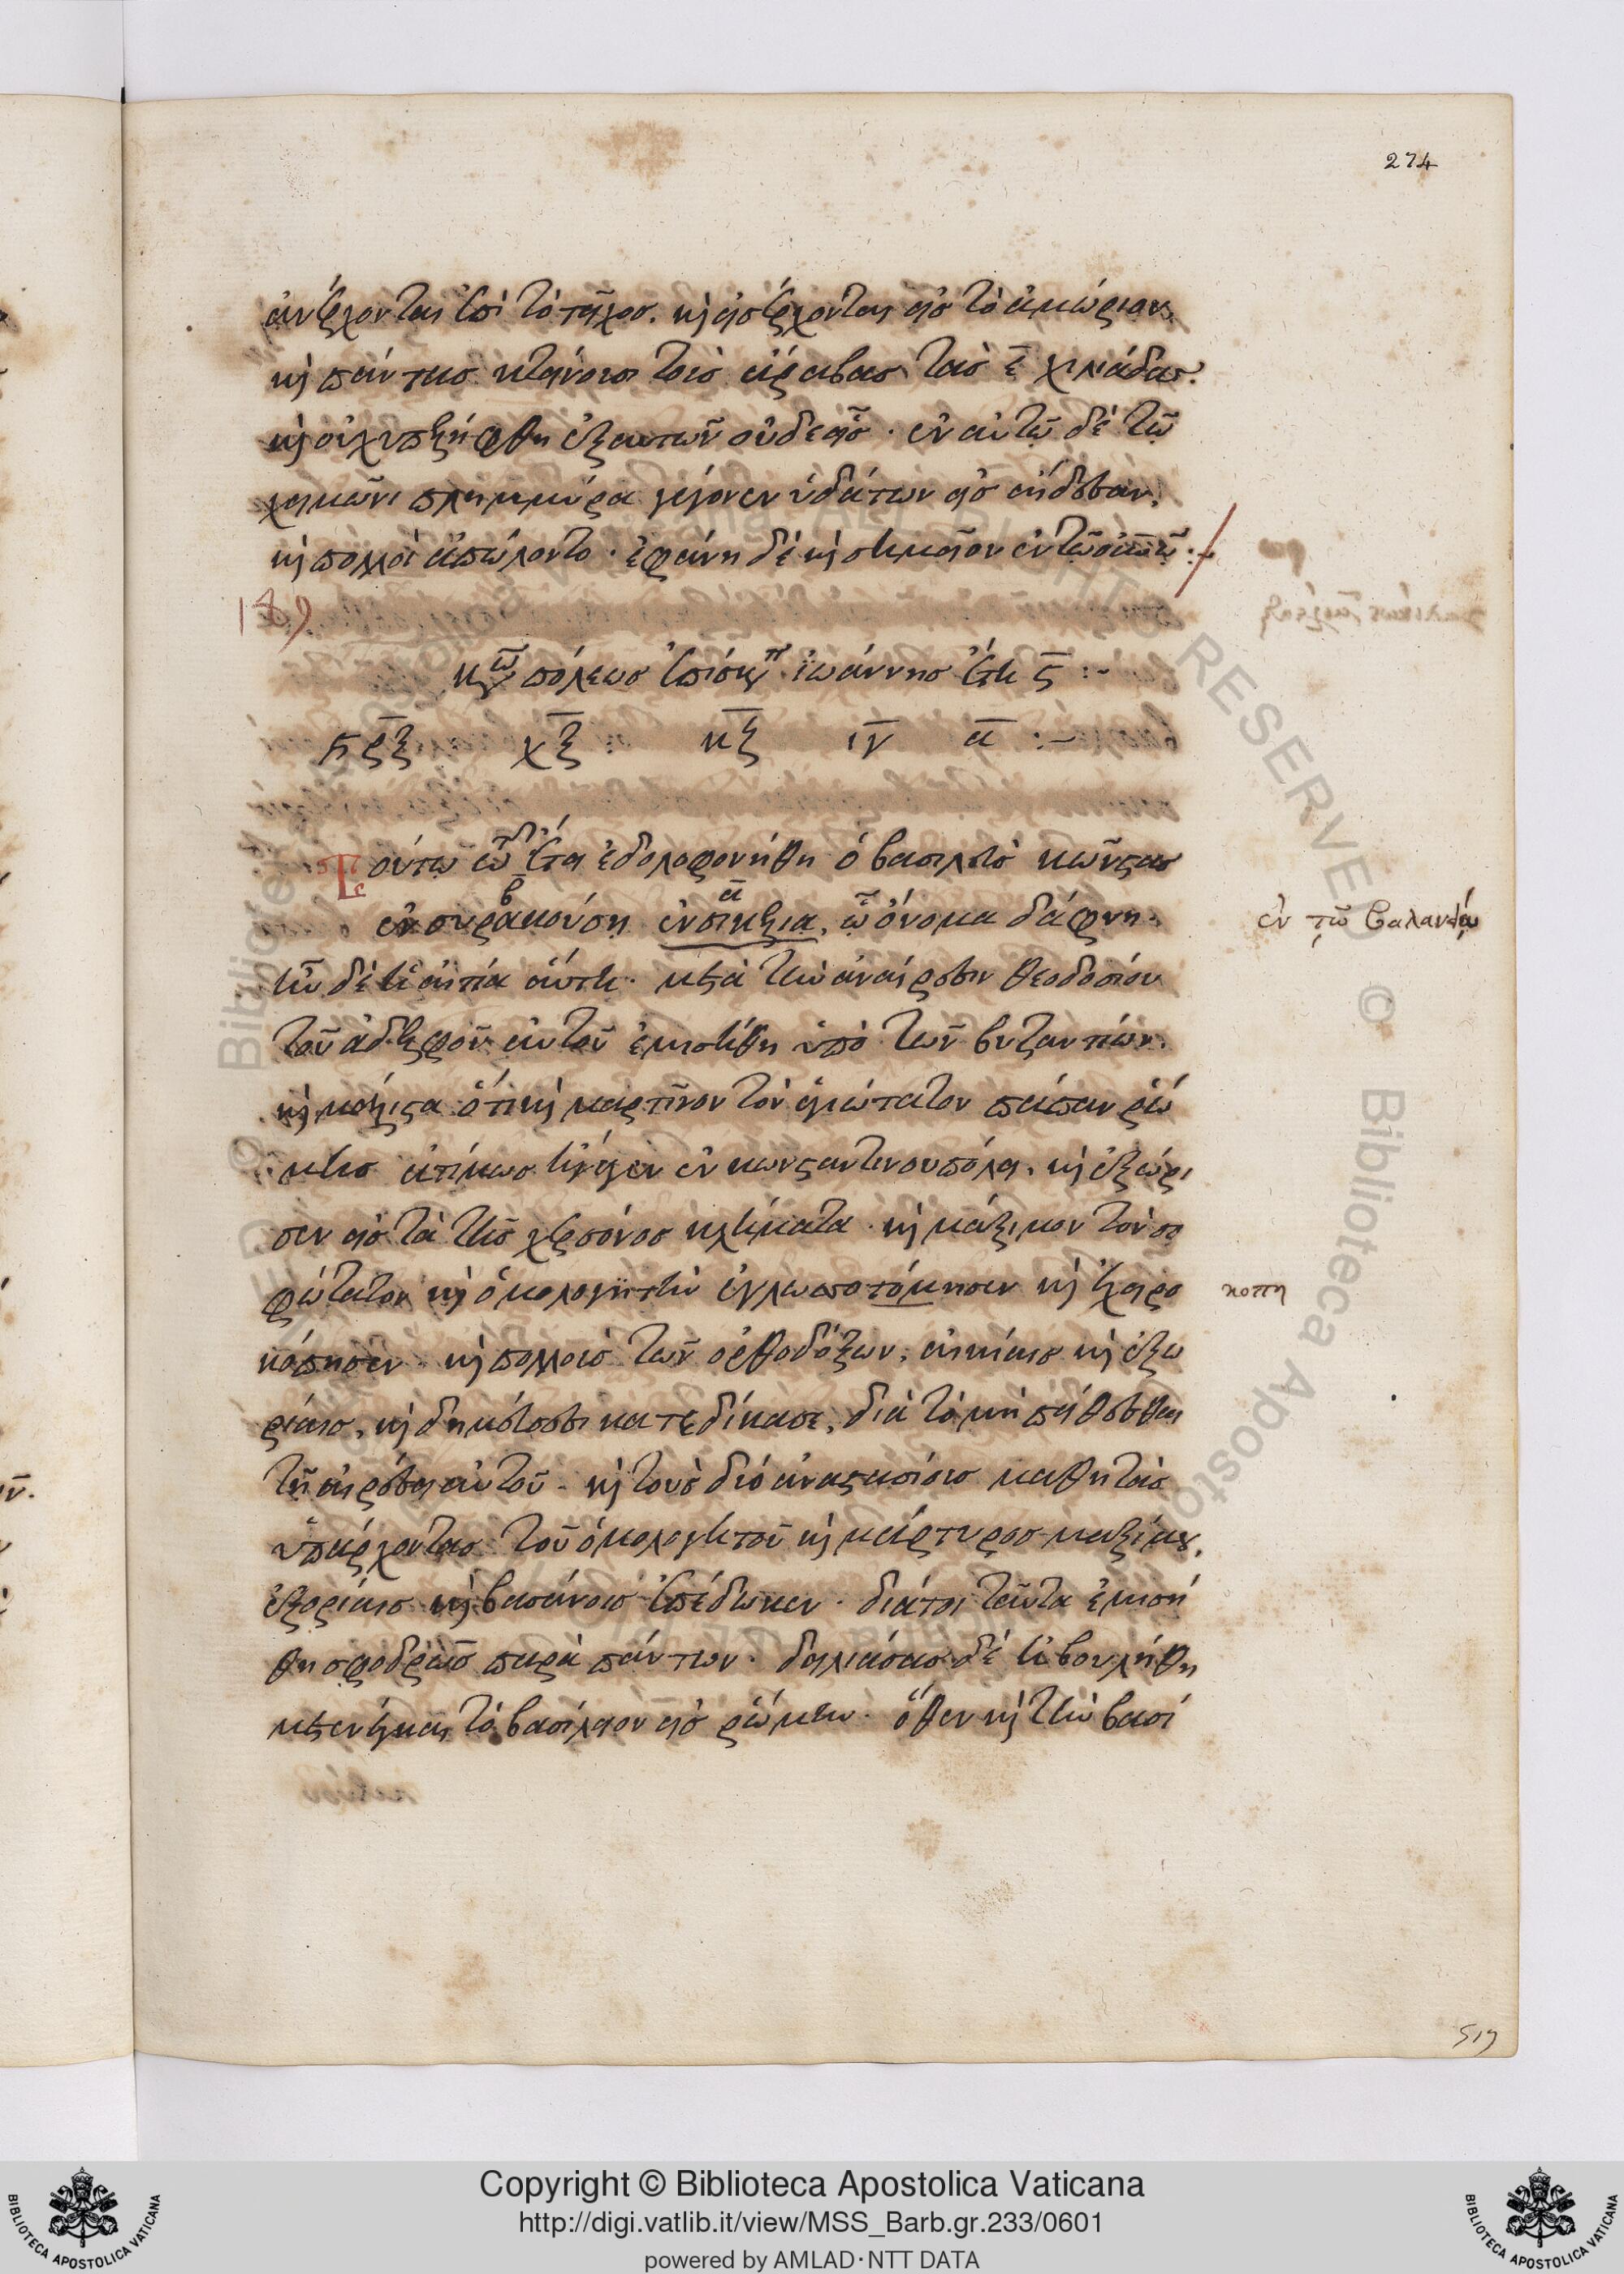 274
ἀνέρχονται ἐπὶ τὸ τεῖχος. καὶ εἰσέρχονται εἰς τὸ ἀμώριον,
καὶ πάντας κτείνουσι τοὺς ἄραβας τὰς ε̄ χιλιάδας.
καὶ οὐχ ὑπελήφθη ἐξ αὐτῶν οὐδεὶς. ἐν αὐτῷ δὲ τῷ
χειμῶνι πλημμύρα γέγονεν ὑδάτων εἰς αἴδεσαν,
καὶ πολλοὶ ἀπώλοντο. ἐφάνη δὲ καὶ σημεῖον ἐν τῷ οὐνῷ :-
189
κω πόλεως ἐπίσκοπ ἰωάννης ἔτη ς̄ :-
ϛρξ χξ κζ ιγ ᾱ :-
Τούτῳ τῷ ἔτει ἐδολοφονήθη ὁ βασιλεὺς κώνστας
ἐν συρακούση ἐν σικελία, ὧ ὄνομα δάφνη.
β ᾱ
ἐν τῷ βαλανείῳ
ἦν δὲ ἡ αἰτία αὕτη. μετὰ τὴν ἀναίρεσιν θεοδοσίου
τοῦ ἀδελφοῦ αὐτοῦ ἐμισήθη ὑπὸ τῶν βυζαντίων.
καὶ μάλιστα ὅτι καὶ μαρτῖνον τὸν ἁγιώτατον πάπαν ῥώ
μης ἀτίμως ἤγαγεν ἐν κωνσταντινουπόλει. καὶ ἐξώρι
σεν εἰς τὰ τῆς χερσόνος κλήματα. καὶ μάξιμον τὸν σο
φώτατον καὶ ὁμολογητὴν ἐγλωττοτόμησεν καὶ ἐχειρο
κοπη
κόπησεν. καὶ πολλοὺς τῶν ὀρθοδόξων, αἰκίαις καὶ ἐξο
ρίαις, καὶ δημεύσεσι κατεδίκασε, διὰ τὸ μὴ πείθεσθαι
τῇ αἱρέσει αὐτοῦ. καὶ τοὺς δύο ἀναστασίους μαθητὰς
ὑπάρχοντας τοῦ ὁμολογητοῦ καὶ μάρτυρος μαξίμου,
ἐξορίαις καὶ βασάνοις ἐπέδωκεν. διάτοι ταῦτα ἐμισή
θη σφοδρῶς παρὰ πάντων. δειλιάσας δὲ ἠβουλήθη
μετενέγκαι τὸ βασίλειον εἰς ῥώμην. ὅθεν καὶ τὴν βασί
519
Copyright © Biblioteca Apostolica Vaticana
http://digi.vatlib.it/view/MSS_Barb.gr.233/0601
powered by AMLAD·NTT DATA
BIBLIOTECA APOSTOLICA VATICANA
BIBLIOTECA APOSTOLICA VATICANA